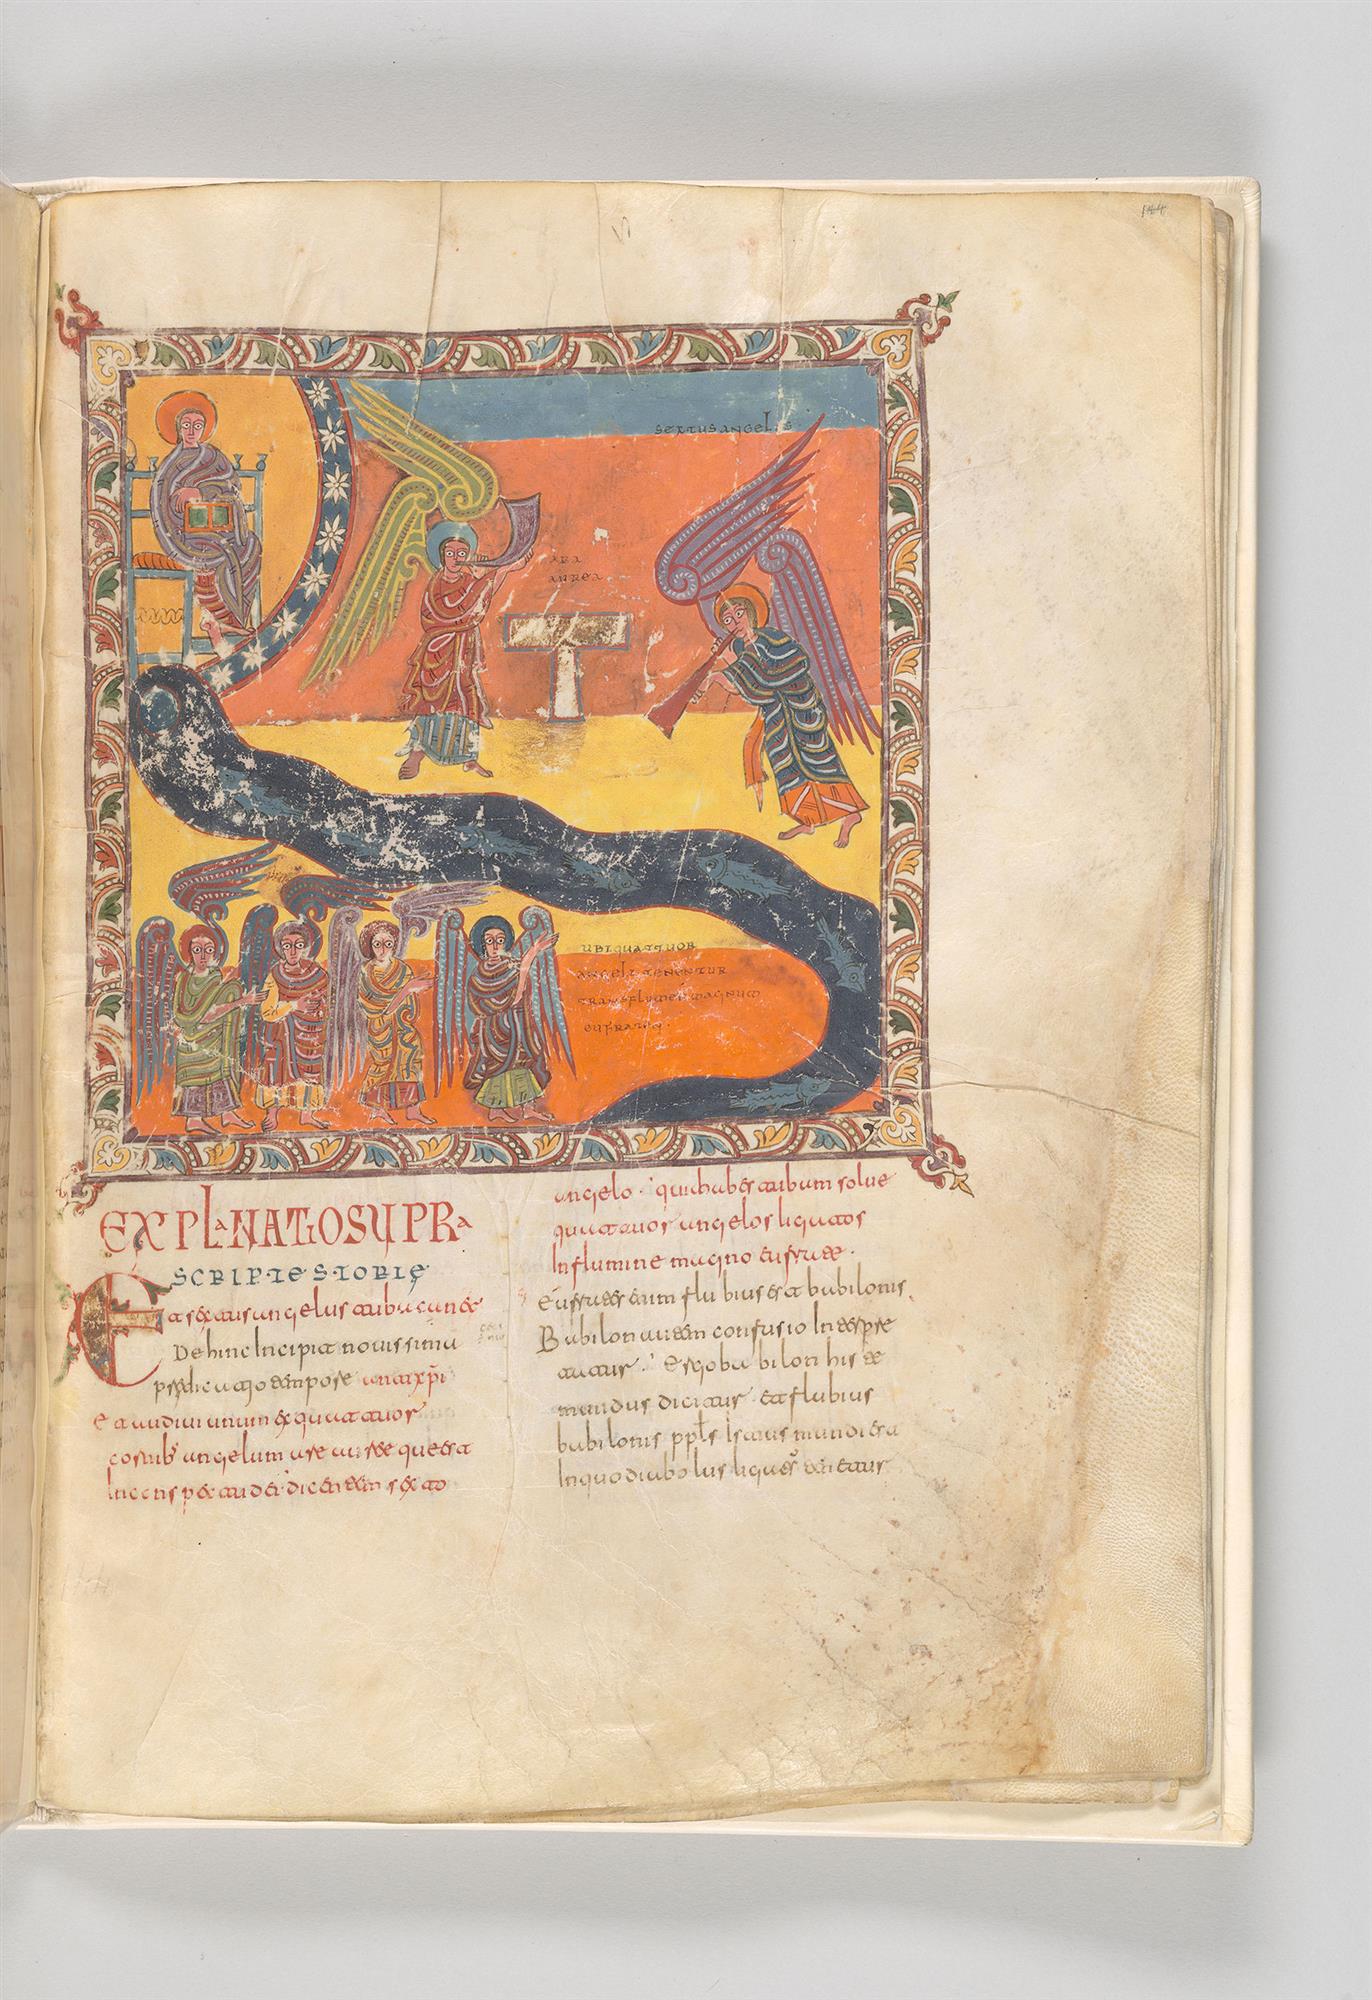 144
SEXTUS ANGELUS
ARA
AUREA
UBI QUATTUOR
ANGELI TENENTUR
TRANS FLUMEN MAGNUM
EUFRATEN
EXPLANATIO SUPRA
SCRIPTE STORIE
Et sextus angelus tuba cecinit
Dehinc incipit novissima
predicatio
Et audivi unum ex quattuor
cornib; angelum are auree que est
in conspectu dei dicentem sexto
angelo qui habet tubam solve
quattuor angelos ligatos
in flumine magno eufrate
eufrates enim flubius est babilonis
Babilon autem confusio interpre
tatur Ergo babilon hic
mundus dicitur et flubius
babilonis ppls istius mundi est
in quo diabolus